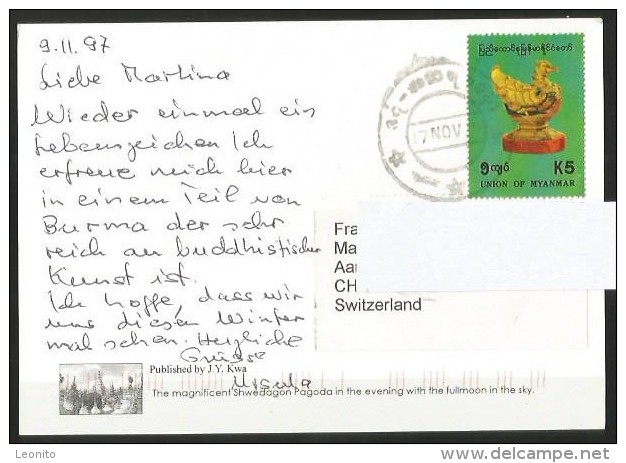 9.11.97
Liebe Martina
Wieder einmal ein
Lebenszeichen Ich
erfreue mich hier
in einem Teil von
Burma der sehr
reich an buddhistischer
Kunst ist.
Ich hoffe, dass wir
uns diesen Winter
mal sehen. Herzliche
Grüsse
Ursula
Published by J.Y. Kwa
The magnificent Shwedagon Pagoda in the evening with the fullmoon in the sky.
ပြည်ထောင်စုမြန်မာနိုင်ငံတော်
၅ကျပ် K5
UNION OF MYANMAR
17 NOV
Fra
Ma
Aar
CH
Switzerland
Leonito
www.delcampe.net